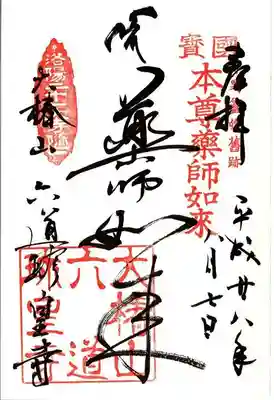 奉拝
平成廿八年
八月七日
國寶
本尊藥師如來
醫藥師如来
洛陽三十三所
大椿山
六道珍皇寺
大椿山
六道
珍皇寺